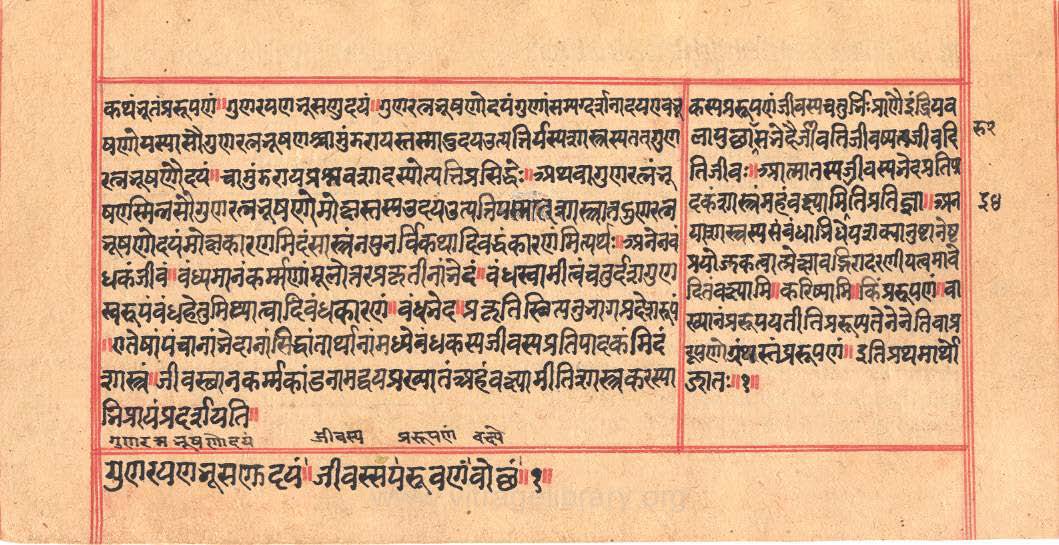 कथंभूतंप्ररूपणं॥गुणरयणभूसणुदयं॥गुणरत्नभूषणोदयंगुणांसम्यग्दर्शनादयएवभू
षणोयस्यासौगुणरत्नभूषणश्चामुंडरायस्तस्मादुदयउत्पत्तिर्यस्यशास्त्रस्यतत्गुण
रत्नभूषणोदयं॥चामुंडरायप्रश्नवशादस्योत्पत्तिप्रसिद्धेः॥अथवागुणरत्नंभू
षणस्मिन्नसौगुणरत्नभूषणोमोक्षस्तस्यउदयउत्पत्ति शास्त्रात्गुणरत्न
भूषणोदयंमोक्षकारणमिदंसास्त्रंनपुनर्विकथादिवद्वंकारणंमित्यर्थः॥अनेनबं
धकंजीवं॥वंध्यमानंकर्म्मणामूलोत्तरप्रकृतीनांभेदं॥वंधस्वामीत्वंचतुर्दशगुण
स्वरूपंबंधहेतुमिथ्यात्वादिवंधकारणं॥वंधभेद॥प्रकृतिस्थित्यनुभागप्रदेशरूपं
॥एतेषांपंचानांभेदानांसिद्धांतार्थानांमध्येबंधकस्यजीवस्यप्रतिपादकंमिदं
शास्त्रं॥जीवस्थानकर्म्मकांडनामद्वयप्रख्यातंअहंवक्ष्यामीतिशास्त्रकरस्या
भिप्रायंप्रदर्शयति॥
गुणरत्नभूषणोदयं जीवस्य प्ररूपणं वक्ष्ये
गुणरयणभूसणुदयं॥जीवस्सपरूवणंवोच्छं॥१॥
कस्यप्ररूपणंजीवस्यचतुर्भिःप्राणैइंद्रियव
लायुच्छ्वासभेदैर्जीवतिजीवष्यत्यजीवदि
तिजीवः॥आत्मातस्यजीवस्यभेदप्रतिपा
दकंशास्त्रंमहंवक्ष्यामिति प्रतिज्ञा॥अन
याशास्त्रस्यसंबंधाभिधेयशक्यानुष्टानेष्ट
प्रयोजकत्वात्प्रेक्षावद्भिरादरणीयत्वमावे
दितंवक्ष्यामि॥करिष्यामि॥किंप्ररूपणं॥वा
ख्यानंप्ररूपयतीतिप्ररूप्यतेनेनेतिवाप्र
रूपणोग्रंथस्तंप्ररूपणं॥इतिप्रथमार्थो
ज्ञातः॥१॥